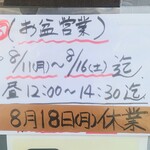 お盆営業
8/11(月)～8/16(土)迄
昼12:00～14:30迄
8月18日(月)休業